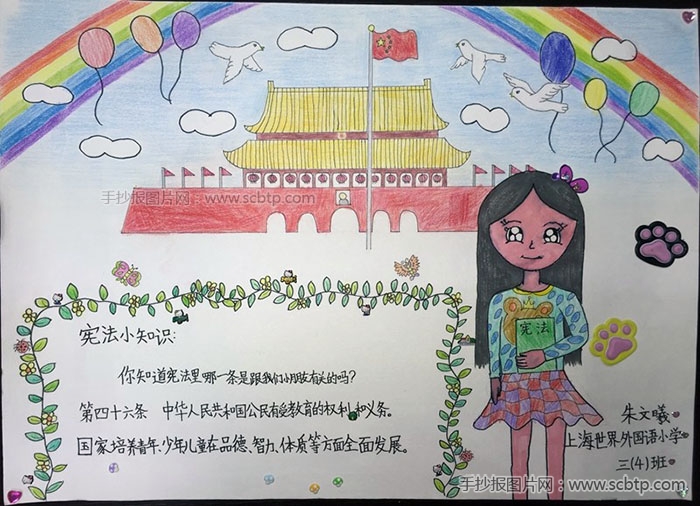 手抄报图片网：www.scbtp.com
宪法
宪法小知识：
你知道宪法里哪一条是跟我们小朋友有关的吗？
第四十六条 中华人民共和国公民有受教育的权利和义务。
国家培养青年、少年、儿童在品德、智力、体质等方面全面发展。
朱文曦
上海世界外国语小学
三（4）班
手抄报图片网：www.scbtp.com